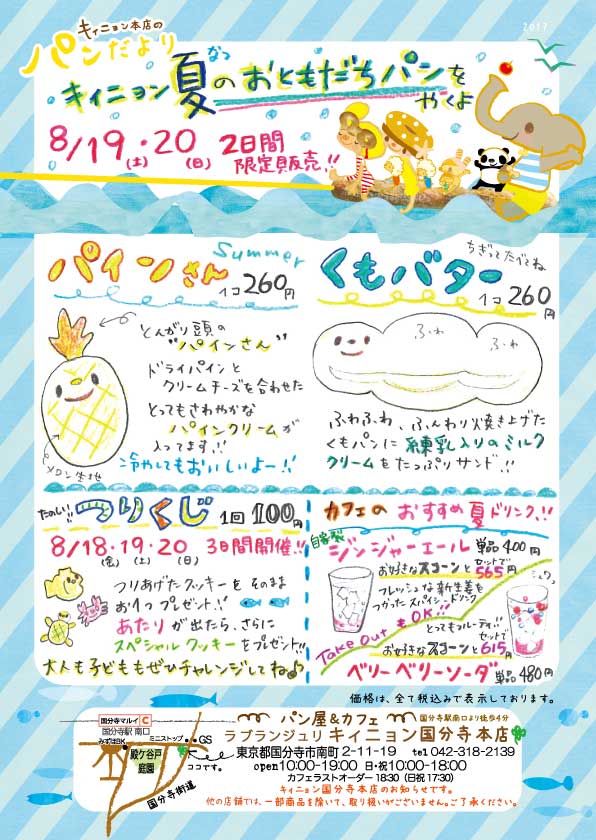 キィニョン本店の
パンだより
2017
キィニョン夏のおともだちパンを
なつ
やくよ
8/19・20 2日間
(土) (日) 限定販売!!
パインさん
Summer
1コ260円
とんがり頭の
"パインさん"
ドライパインと
クリームチーズを合わせた
とってもさわやかな
パインクリームが
入ってます!!
メロン生地
冷やしてもおいしいよー!!
くもバター
ちぎってたべてね
1コ260円
ふわ
ふわ
ふわふわ、ふんわり焼き上げた
くもパンに練乳入りのミルク
クリームをたっぷりサンド!!
たのしい!!
つりくじ 1回100円
8/18・19・20 3日間開催!!
(金) (土) (日)
つりあげたクッキーをそのまま
お1つプレゼント!!
あたりが出たら、さらに
スペシャルクッキーをプレゼント!!
大人も子どももぜひチャレンジしてね♪
カフェのおすすめ夏ドリンク!!
自家製
ジンジャーエール 単品400円
お好きなスコーンとセットで565円
フレッシュな新生姜を
つかったスパイシードリンク
シュワッ
Take OutもOK!!
とってもフルーティ!!
お好きなスコーンとセットで615円
ベリーベリーソーダ 単品480円
価格は、全て税込みで表示しております。
国分寺マルイ C
国分寺駅 南口
みずほBK
ミニストップ
GS
殿ケ谷戸
庭園
ココです。
国分寺街道
パン屋&カフェ 国分寺駅南口より徒歩4分
ラブランジュリ キィニョン国分寺本店
東京都国分寺市南町 2-11-19 tel 042-318-2139
open10:00-19:00 日・祝10:00-18:00
カフェラストオーダー 18:30 (日祝 17:30)
キィニョン国分寺本店のお知らせです。
他の店舗では、一部商品を除いて、取り扱いがございません。ご了承ください。